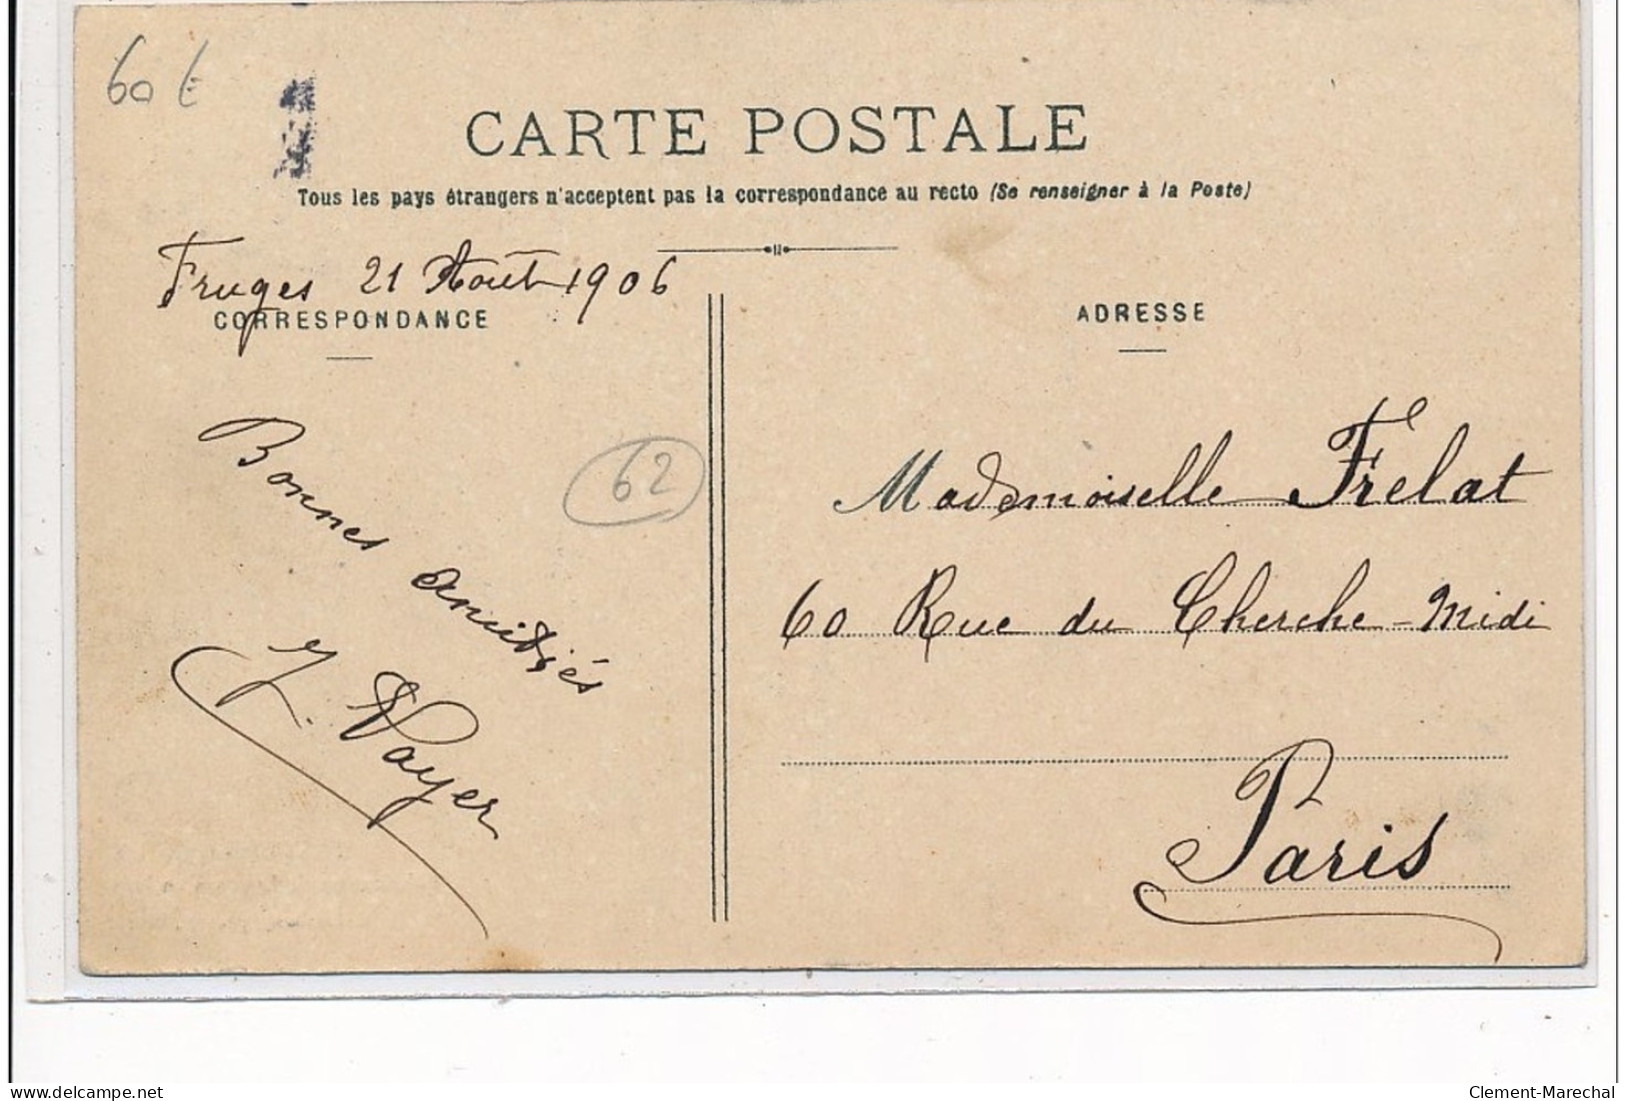 60 €
CARTE POSTALE
Tous les pays étrangers n'acceptent pas la correspondance au recto (Se renseigner à la Poste)
Fruges 21 Août 1906
CORRESPONDANCE
Bonnes
amitiés
62
ADRESSE
Mademoiselle Frelat
60 Rue du Cherche-Midi
Paris
delcampe.net
Clement-Marechal